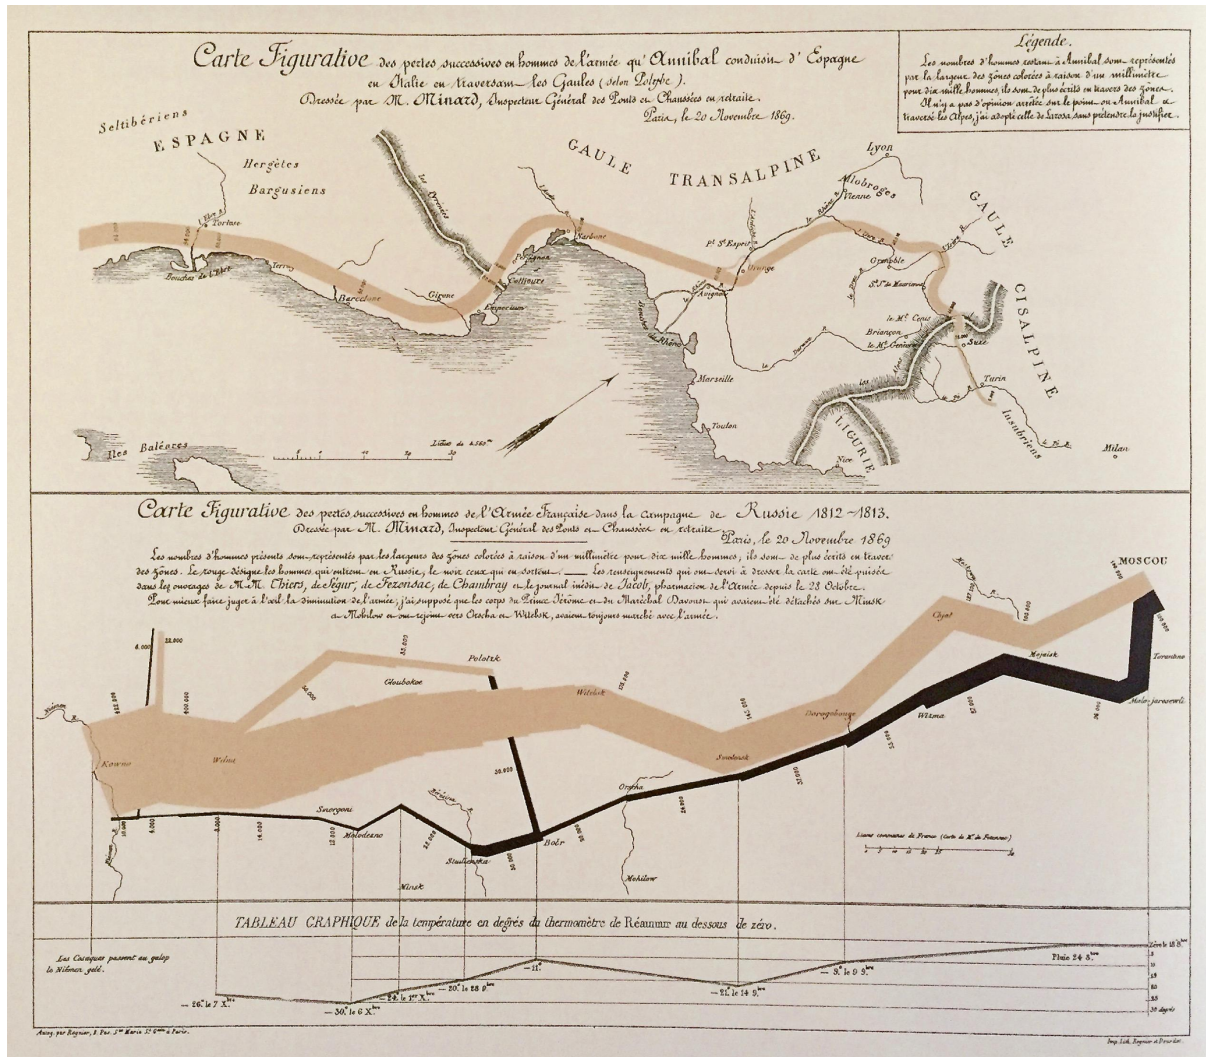 Carte Figurative des pertes successives en hommes de l'armée qu'Annibal conduisit d'Espagne
en Italie en traversant les Gaules (selon Polybe).
Dressée par M. Minard, Inspecteur Général des Ponts et Chaussées en retraite.
Paris, le 20 Novembre 1869.
Légende.
Les nombres d'hommes restant à Annibal sont représentés
par la largeur des zônes colorées à raison d'un millimètre
pour dix mille hommes; ils sont de plus écrits en travers des zones.
Il n'y a pas d'opinion arrêtée sur le point où Annibal a
traversé les Alpes, j'ai adopté celle de Larosa, sans prétendre la justifier.
Seltibériens
ESPAGNE
Hergètes
Bargusiens
l'Ebre R.
Tortose
Bouches de l'Ebre
Barcelone
Girone
Emporium
les Pyrénées
Collioure
Perpignan
Narbonne
GAULE TRANSALPINE
Lyon
Allobroges
Vienne
le Rhône R.
Pt. St. Esprit
Orange
Avignon
Bouches du Rhône
Marseille
Toulon
Nice
LIGURIE
l'Isère R.
Grenoble
St. Jn. de Maurienne
le Mt. Cenis
Briançon
le Mt. Genèvre
la Durance R.
les Alpes
Suze
Turin
le Pô R.
Insubriens
Milan
GAULE
CISALPINE
Iles Baléares
Carte Figurative des pertes successives en hommes de l'Armée Française dans la campagne de Russie 1812-1813.
Dressée par M. Minard, Inspecteur Général des Ponts et Chaussées en retraite.
Paris, le 20 Novembre 1869
Les nombres d'hommes présents sont représentés par les largeurs des zônes colorées à raison d'un millimètre pour dix mille hommes; ils sont de plus écrits en travers
des zônes. Le rouge désigne les hommes qui entrent en Russie, le noir ceux qui en sortent. — Les renseignements qui ont servi à dresser la carte ont été puisés
dans les ouvrages de M.M. Thiers, de Ségur, de Fezensac, de Chambray et le journal inédit de Jacob, pharmacien de l'Armée depuis le 28 Octobre.
Pour mieux faire juger à l'œil la diminution de l'armée, j'ai supposé que les corps du Prince Jérôme et du Maréchal Davoust qui avaient été détachés sur Minsk
et Mohilow et ont rejoint vers Orscha et Witebsk, avaient toujours marché avec l'armée.
MOSCOU
100.000
100.000
Tarantino
Malo-jarosewli
Mojaisk
Chjat
Wizma
Dorogobouge
Smolensk
Witebsk
Polotzk
Gloubokoe
Wilna
Kowno
Niémen R.
6.000
22.000
422.000
400.000
60.000
33.000
175.000
145.000
30.000
Smorgoni
Molodezno
Minsk
Bérézina R.
Studienska
Bobr
Orscha
Mohilow
55.000
37.000
24.000
20.000
50.000
28.000
12.000
14.000
8.000
4.000
10.000
Lieues communes de France (Carte de Mr. de Fezensac)
TABLEAU GRAPHIQUE de la température en degrés du thermomètre de Réaumur au dessous de zéro.
Les Cosaques passent au galop
le Niémen gelé.
— 26.° le 7 Xbre
— 30.° le 6 Xbre
— 24. le 1er Xbre
— 20.° le 28 9bre
— 11.°
— 21.° le 14 9bre
— 9.° le 9 9bre
Pluie 24 8bre
Zéro le 18 8bre
5
10
15
20
25
30 degrés
Autog. par Regnier, 8. Pas. Ste. Marie St. Gain à Paris.
Imp. Lith. Regnier et Dourdet.